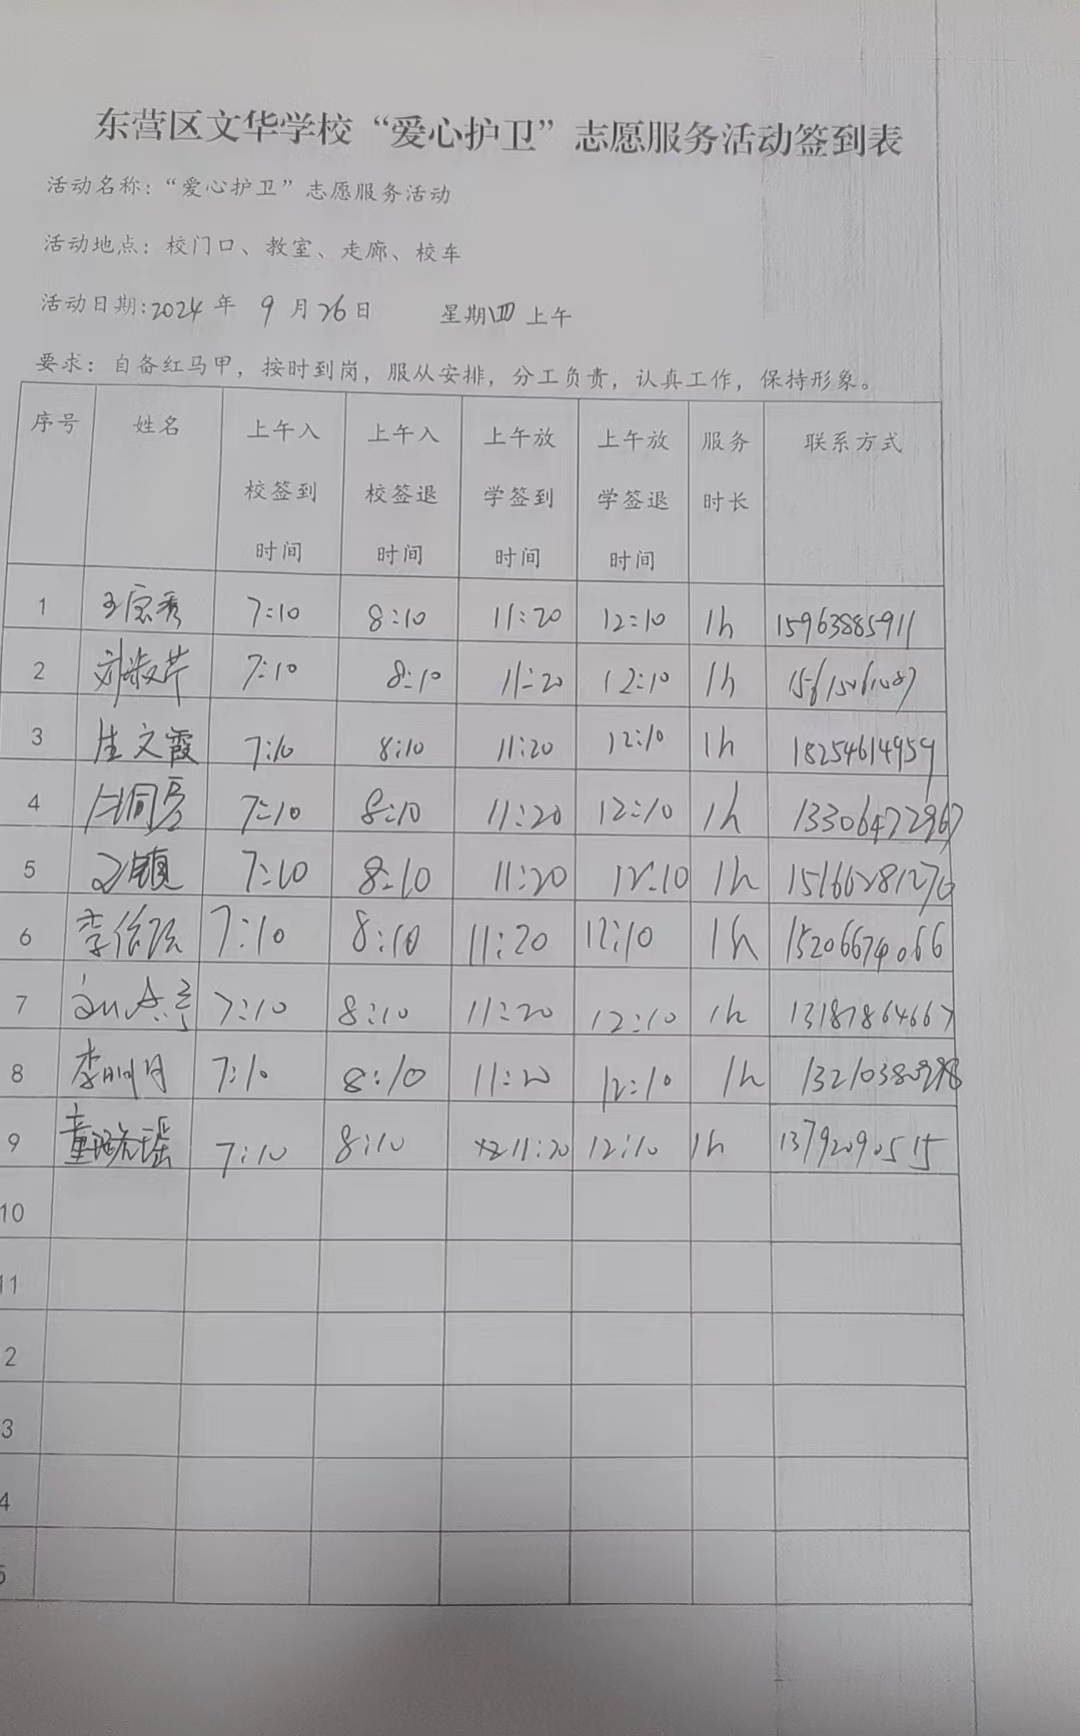 东营区文华学校“爱心护卫”志愿服务活动签到表
活动名称：“爱心护卫”志愿服务活动
活动地点：校门口、教室、走廊、校车
活动日期：2024年 9月26日 星期四 上午
要求：自备红马甲，按时到岗，服从安排，分工负责，认真工作，保持形象。
序号 姓名 上午入校签到时间 上午入校签退时间 上午放学签到时间 上午放学签退时间 服务时长 联系方式
1 7:10 8:10 11:20 12:10 1h 15963885911
2 刘淑芹 7:10 8:10 11:20 12:10 1h
3 生文霞 7:10 8:10 11:20 12:10 1h 18254614959
4 7:10 8:10 11:20 12:10 1h 13306472967
5 7:10 8:10 11:20 12:10 1h
6 7:10 8:10 11:20 12:10 1h 15206674066
7 7:10 8:10 11:20 12:10 1h 13187864667
8 李明月 7:10 8:10 11:20 12:10 1h
9 7:10 8:10 11:20 12:10 1h 13792090515
10
11
2
3
4
5